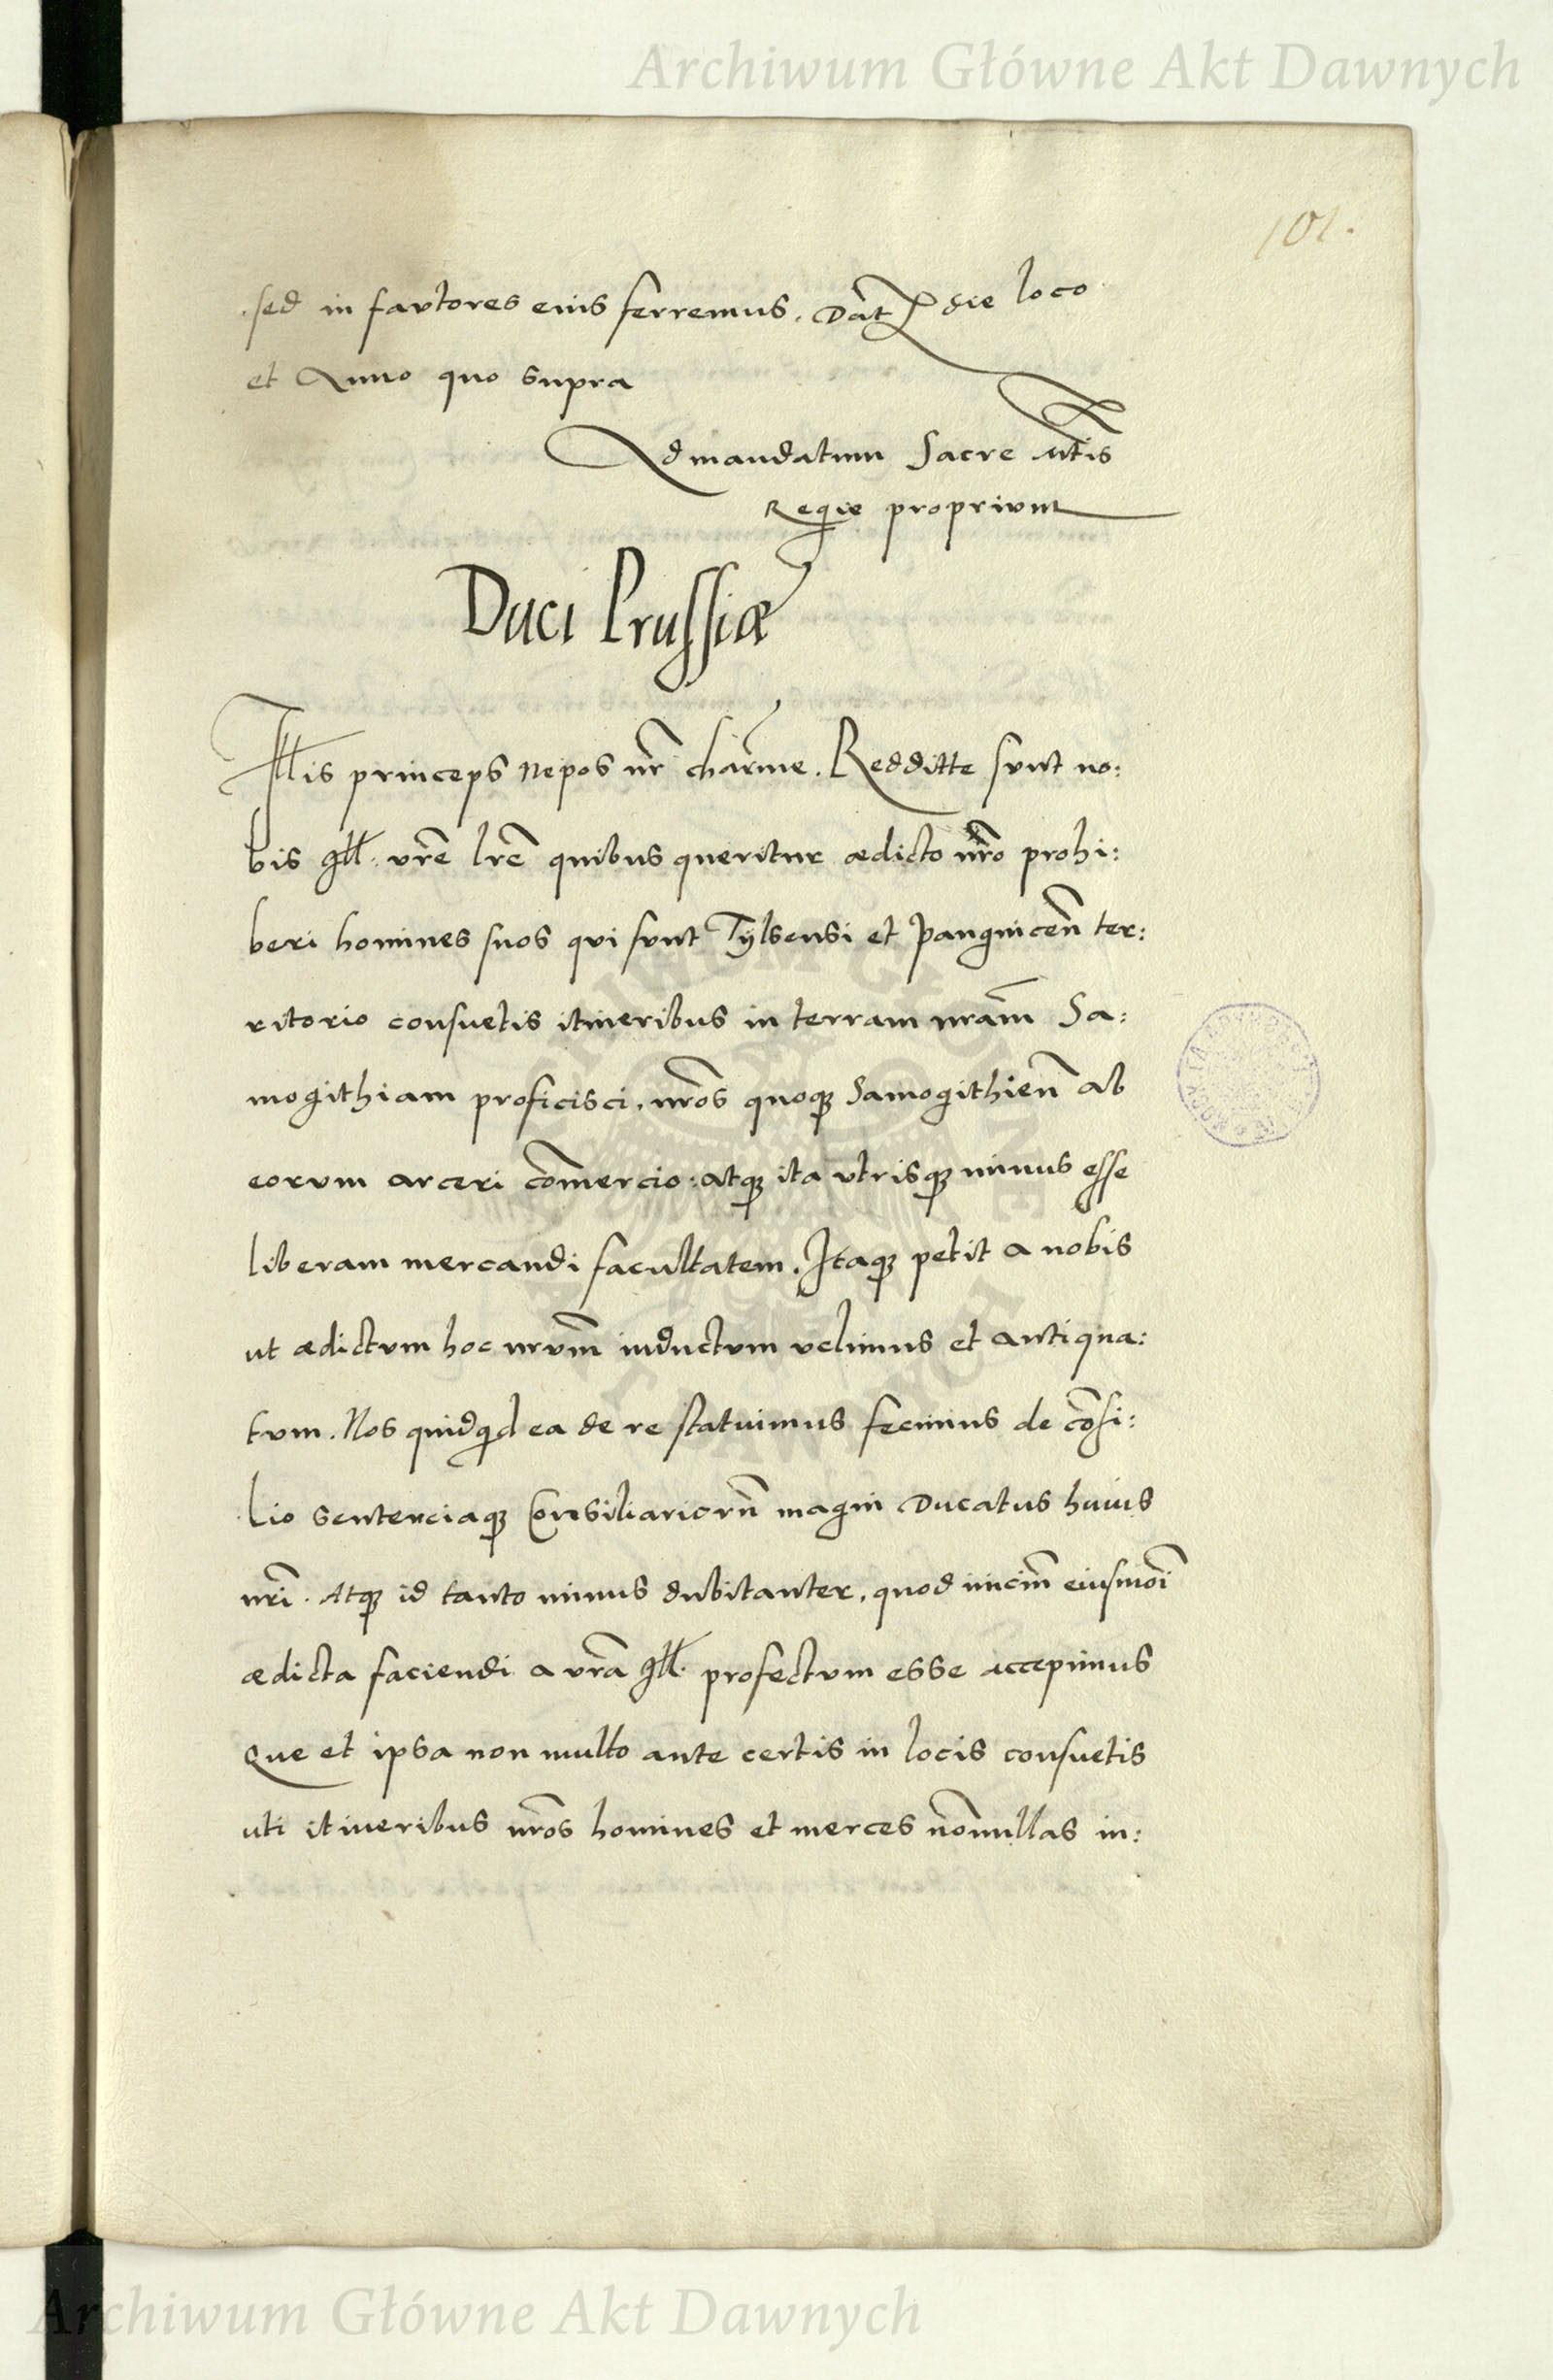 Archiwum Główne Akt Dawnych
101.
sed in fautores eius ferremus. Dat̃ die loco
et Anno quo supra
Ad mandatum Sacre Mtis
Regie proprium
Duci Prussiæ
Illis princeps nepos nr̃ charme. Redditte sunt no:
bis Ill. vrẽ lrẽ quibus queritur ædicto nrõ prohi:
beri homines suos qui sunt Tylsensi et Pangnicen̄ ter:
ritorio consuetis itineribus in terram nram̃ Sa:
mogithiam proficisci, nrõs quoq; Samogithien̄ ab
eorum arceri com̄ercio: atq; ita vtrisq; minus esse
liberam mercandi facultatem. Itaq; petit a nobis
ut ædictum hoc nrum̃ inductum velimus et antiqua:
tum. Nos quidqid ea de re statuimus fecimus de cõsi:
lio sentenciaq; Consiliariorũ magni Ducatus huius
nrĩ. Atq; id tanto minus dubitanter, quod inicium̃ eiusmoĩ
ædicta faciendi a vrã Ill. profectum esse accepimus
Que et ipsa non multo ante certis in locis consuetis
uti itineribus nrõs homines et merces nõnullas in:
Archiwum Główne Akt Dawnych